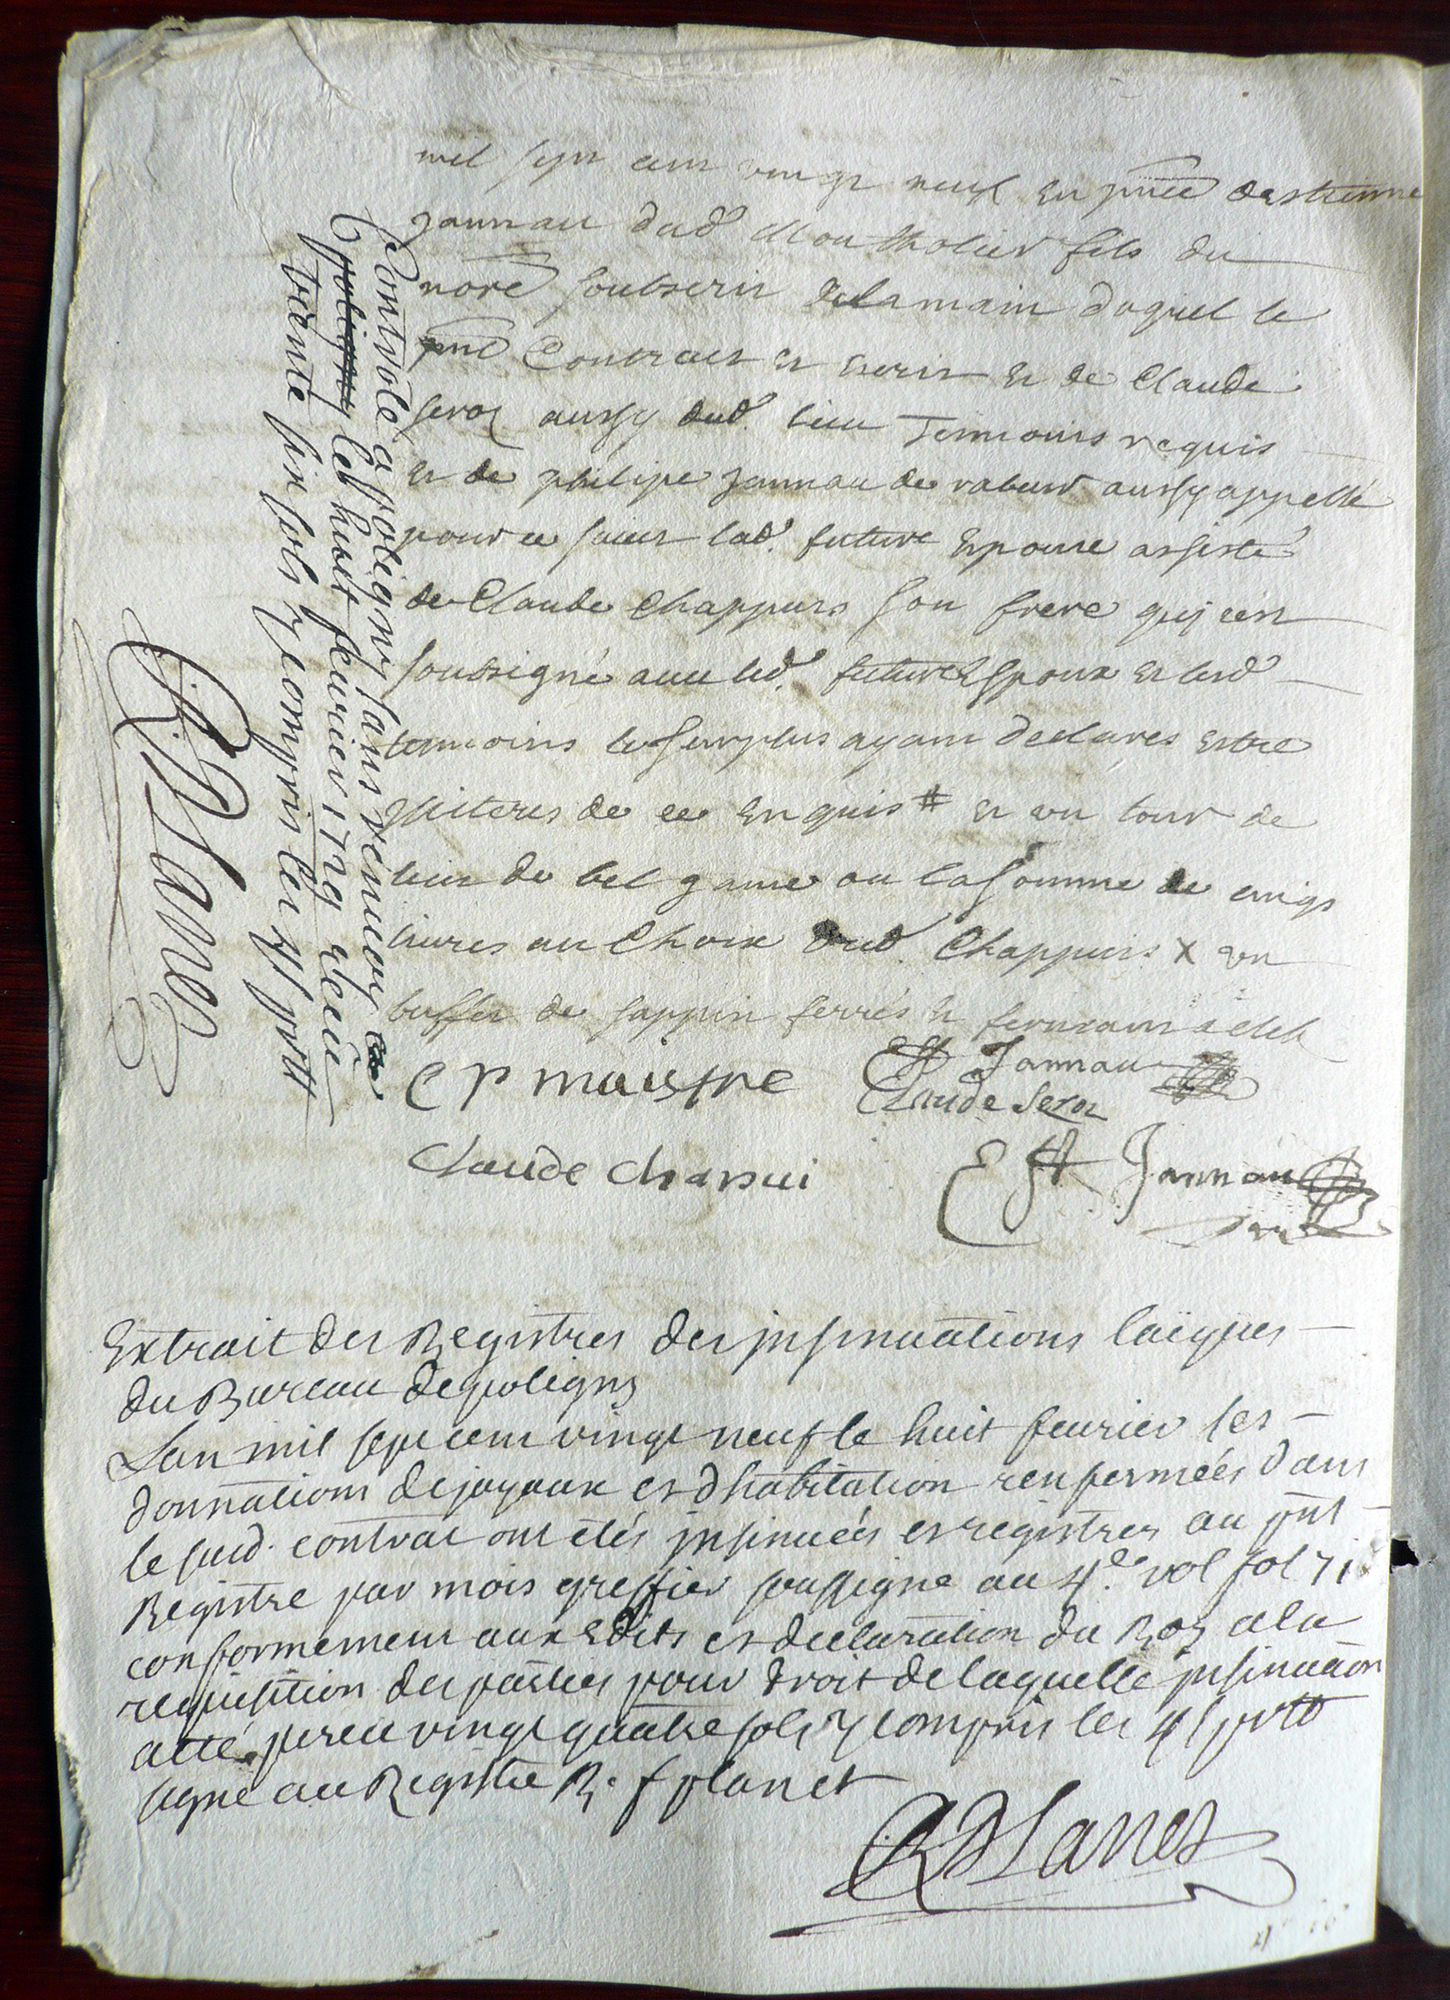 mil sept cent vingt neuf en pnce destienne
Jannau dud. Montholier fils du
nore soubscrit de la main duquel le
pnt Contract est escrit et de Claude
Seroz aussy dud. lieu temoins requis
et de philipe Jannau de aussy appellé
pour ce sujet lad. future Epouse assisté
de Claude Chappuis son frere qui cest
soubsigné avec led. futur Espoux et lesd
temoins le surplus ayant declares estre
illiteres de ce enquis # et un tour de
lict de bel game ou la somme de vingt
livres au Choix dud. Chappuis X un
buffet de sappin ferrés et fermant a clef
C P maistre
E Jannau
Claude Seroz
Claude Chapui
E Jannau
Controlé a poligny sans renvoy
poligny le huit feurier 1729 receu
trente six sols y compris les 4 s/ p ltt
R Planet
Extrait des Registres des jnsinuations laïques
du Bureau de poligny
Lan mil sept cent vingt neuf le huit feurier les
donnations de joyaux et dhabitation renfermées dans
le susd. contrat ont étés jnsinuées et registrees au pnt
Registre par mois greffier soussigne au 4e. vol fol 71
conformement aux Edits et declaration du Roy a la
requisition des parties pour droit de laquelle jnsinuation
atté percu vingt quatre sols y compris les 4 s/ p ltt
signé au Registre R. f planet
R Planet